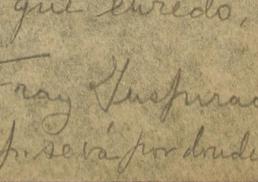 que enredo,
Fray Inspirac
p. se vá por donde